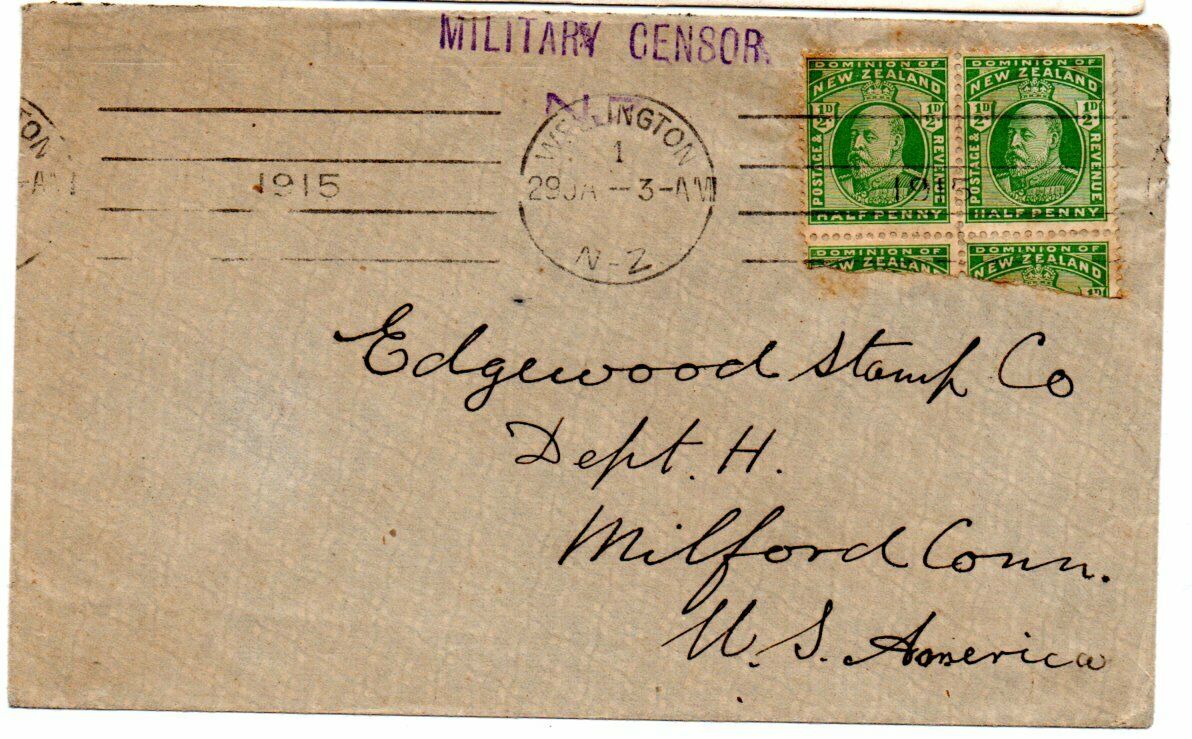 MILITARY CENSOR.
N.Z.
WELLINGTON
1
29JA -3-AM
N-Z
1915
1915
TON
-AM
DOMINION OF
NEW ZEALAND
½D ½D
POSTAGE & REVENUE
HALF PENNY
DOMINION OF
NEW ZEALAND
½D ½D
POSTAGE & REVENUE
HALF PENNY
DOMINION OF
W ZEALAND
DOMINION OF
NEW ZEALAND
½D
Edgewood Stamp Co
Dept. H.
Milford Conn.
U. S. America